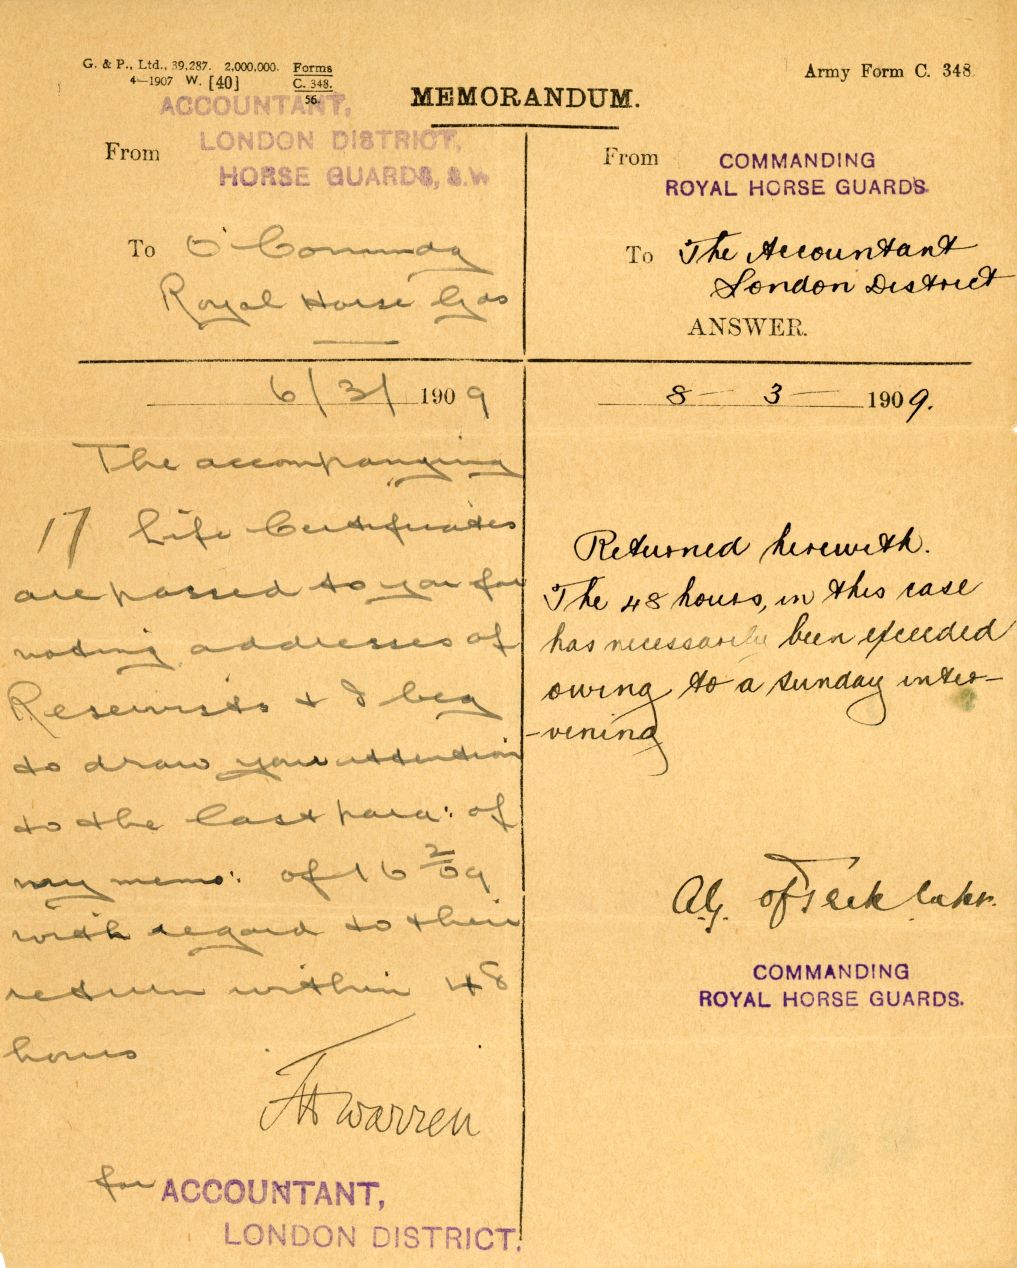 G. & P., Ltd., 39,287. 2,000,000. Forms
4—1907 W. [40] C. 348.
56.
Army Form C. 348.
MEMORANDUM.
From ACCOUNTANT,
LONDON DISTRICT,
HORSE GUARDS, S.W
To O'Commdg
Royal Horse Gds
6/3/ 1909
The accompanying
17 Life Certificates
are passed to you for
noting addresses of
Reservists & I beg
to draw your attention
to the last para: of
my memo: of 16 2/09
with regard to their
return within 48
hours
Warren
for ACCOUNTANT,
LONDON DISTRICT.
From COMMANDING
ROYAL HORSE GUARDS.
To The Accountant
London District
ANSWER.
8 — 3 — 1909.
Returned herewith.
The 48 hours, in this case
has necessarily been exceeded
owing to a Sunday inter-
-vening
of Teck
COMMANDING
ROYAL HORSE GUARDS.